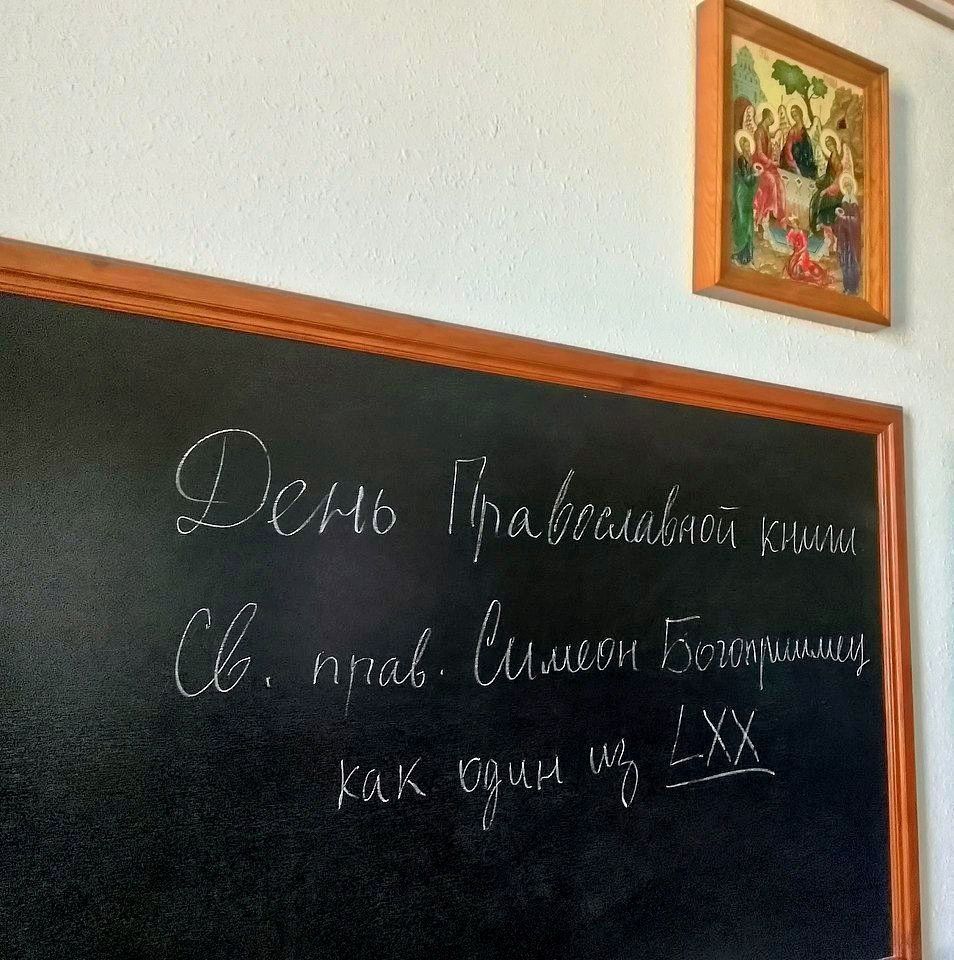 День Православной книги
Св. прав. Симеон Богоприимец
как один из LXX